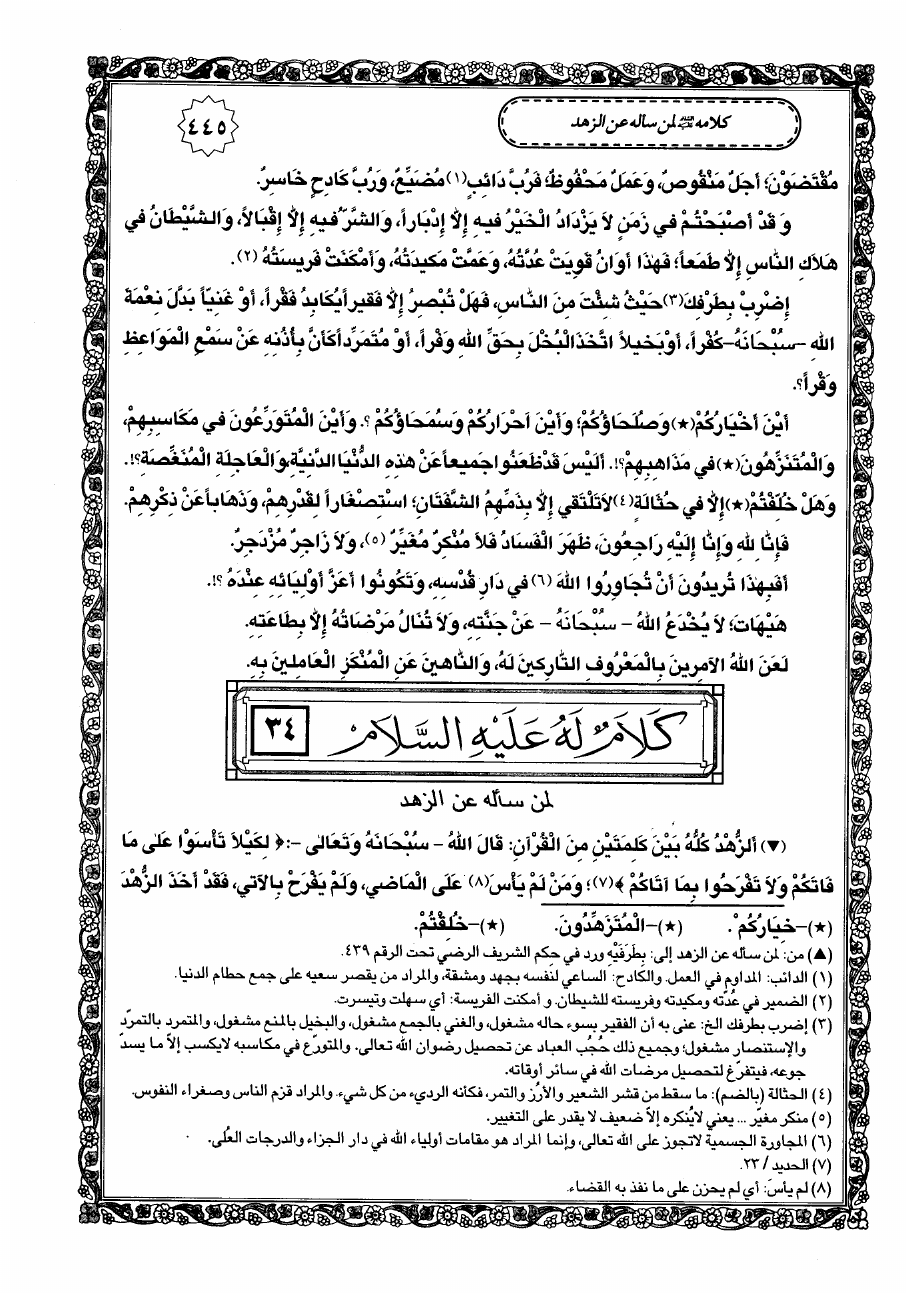 كلامه عليه السلام لمن سأله عن الزهد
٤٤٥
مُقْتَضَوْنَ؛ أَجَلٌ مَنْقُوصٌ، وَعَمَلٌ مَحْفُوظٌ؛ فَرُبَّ دَائِبٍ(١) مُضَيِّعٌ، وَرُبَّ كَادِحٍ خَاسِرٌ.
وَ قَدْ أَصْبَحْتُمْ في زَمَنٍ لاَ يَزْدَادُ الْخَيْرُ فيهِ إِلاَّ إِدْبَاراً، وَالشَّرُّ فيهِ إِلاَّ إِقْبَالاً، وَالشَّيْطَانُ في
هَلاَكِ النَّاسِ إِلاَّ طَمَعاً؛ فَهَذَا أَوَانٌ قَوِيَتْ عُدَّتُهُ، وَعَمَّتْ مَكيدَتُهُ، وَأَمْكَنَتْ فَريسَتُهُ (٢).
إِضْرِبْ بِطَرْفِكَ(٣) حَيْثُ شِئْتَ مِنَ النَّاسِ، فَهَلْ تُبْصِرُ إِلاَّ فَقيراً يُكَابِدُ فَقْراً، أَوْ غَنِيّاً بَدَّلَ نِعْمَةَ
اللهِ -سُبْحَانَهُ- كُفْراً، أَوْ بَخيلاً اتَّخَذَ الْبُخْلَ بِحَقِّ اللهِ وَفْراً، أَوْ مُتَمَرِّداً كَأَنَّ بِأُذُنِهِ عَنْ سَمْعِ الْمَوَاعِظِ
وَقْراً؟.
أَيْنَ أَخْيَارُكُمْ(★) وَصُلَحَاؤُكُمْ؛ وَأَيْنَ أَحْرَارُكُمْ وَسُمَحَاؤُكُمْ ؟. وَأَيْنَ الْمُتَوَرِّعُونَ في مَكَاسِبِهِمْ،
وَالْمُتَنَزِّهُونَ(★) في مَذَاهِبِهِمْ؟!. أَلَيْسَ قَدْ ظَعَنُوا جَميعاً عَنْ هذِهِ الدُّنْيَا الدَّنِيَّةِ، وَالْعَاجِلَةِ الْمُنَغِّصَةِ؟!.
وَهَلْ خُلِّفْتُمْ(★) إِلاَّ في حُثَالَةٍ(٤) لاَ تَلْتَقي إِلاَّ بِذَمِّهِمُ الشَّفَتَانِ؛ اسْتِصْغَاراً لِقَدْرِهِمْ، وَذَهَاباً عَنْ ذِكْرِهِمْ.
فَإِنَّا للهِ وَإِنَّا إِلَيْهِ رَاجِعُونَ، ظَهَرَ الْفَسَادُ فَلاَ مُنْكِرٌ مُغَيِّرٌ (٥)، وَلاَ زَاجِرٌ مُزْدَجِرٌ.
أَفَبِهذَا تُريدُونَ أَنْ تُجَاوِرُوا اللهَ (٦) في دَارِ قُدْسِهِ، وَتَكُونُوا أَعَزَّ أَوْلِيَائِهِ عِنْدَهُ ؟!.
هَيْهَاتَ؛ لاَ يُخْدَعُ اللهُ - سُبْحَانَهُ - عَنْ جَنَّتِهِ، وَلاَ تُنَالُ مَرْضَاتُهُ إِلاَّ بِطَاعَتِهِ.
لَعَنَ اللهُ الآمِرينَ بِالْمَعْرُوفِ التَّارِكينَ لَهُ، وَالنَّاهينَ عَنِ الْمُنْكَرِ الْعَامِلينَ بِهِ.
كَلَامٌ لَهُ عَلَيْهِ السَّلَامُ ٣٤
لمن سأله عن الزهد
(▼) أَلزُّهْدُ كُلُّهُ بَيْنَ كَلِمَتَيْنِ مِنَ الْقُرْآنِ: قَالَ اللهُ - سُبْحَانَهُ وَتَعَالى -: ﴿ لِكَيْلاَ تَأْسَوْا عَلى مَا
فَاتَكُمْ وَلاَ تَفْرَحُوا بِمَا آتَاكُمْ ﴾(٧)؛ وَمَنْ لَمْ يَأْسَ(٨) عَلَى الْمَاضي، وَلَمْ يَفْرَحْ بِالآتي، فَقَدْ أَخَذَ الزُّهْدَ
(★)-خِيَارُكُمْ. (★)-الْمُتَزَهِّدُونَ. (★)-خُلِقْتُمْ.
(▲) من: لمن سأله عن الزهد إلى: بِطَرَفَيْهِ ورد في حِكم الشريف الرضي تحت الرقم ٤٣٩.
(١) الدائب: المداوم في العمل. والكادح: الساعي لنفسه بجهد ومشقة، والمراد من يقصر سعيه على جمع حطام الدنيا.
(٢) الضمير في عُدّته ومكيدته وفريسته للشيطان. و أمكنت الفريسة: أي سهلت وتيسرت.
(٣) إضرب بطرفك الخ: عنى به أن الفقير بسوء حاله مشغول، والغني بالجمع مشغول، والبخيل بالمنع مشغول، والمتمرد بالتمرّد
والإستنصار مشغول؛ وجميع ذلك حُجُب العباد عن تحصيل رضوان الله تعالى. والمتورّع في مكاسبه لا يكسب إلاّ ما يسدّ
جوعه، فيتفرّغ لتحصيل مرضات الله في سائر أوقاته.
(٤) الحثالة (بالضم): ما سقط من قشر الشعير والأرُز والتمر، فكأنه الرديء من كل شيء. والمراد قزم الناس وصغراء النفوس.
(٥) منكر مغيّر ... يعني لا يُنكره إلاّ ضعيف لا يقدر على التغيير.
(٦) المجاورة الجسمية لا تجوز على الله تعالى، وإنما المراد هو مقامات أولياء الله في دار الجزاء والدرجات العُلى.
(٧) الحديد / ٢٣.
(٨) لم يأسَ: أي لم يحزن على ما نفذ به القضاء.